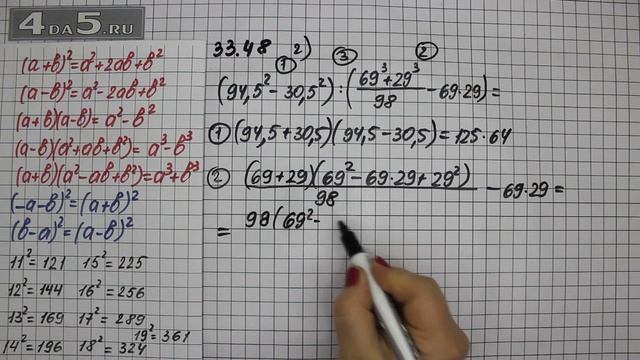 4ДА5.RU
(a+b)²=a²+2ab+b²
(a-b)²=a²-2ab+b²
(a+b)(a-b)=a²-b²
(a-b)(a²+ab+b²)=a³-b³
(a+b)(a²-ab+b²)=a³+b³
(-a-b)²=(a+b)²
(b-a)²=(a-b)²
11²=121 15²=225
12²=144 16²=256
13²=169 17²=289
19²=361
14²=196 18²=324
33.48 2)
① ③ ②
(94,5²-30,5²):((69³+29³)/98-69·29)=
①(94,5+30,5)(94,5-30,5)=125·64
② (69+29)(69²-69·29+29²)/98-69·29=
= 98(69²-